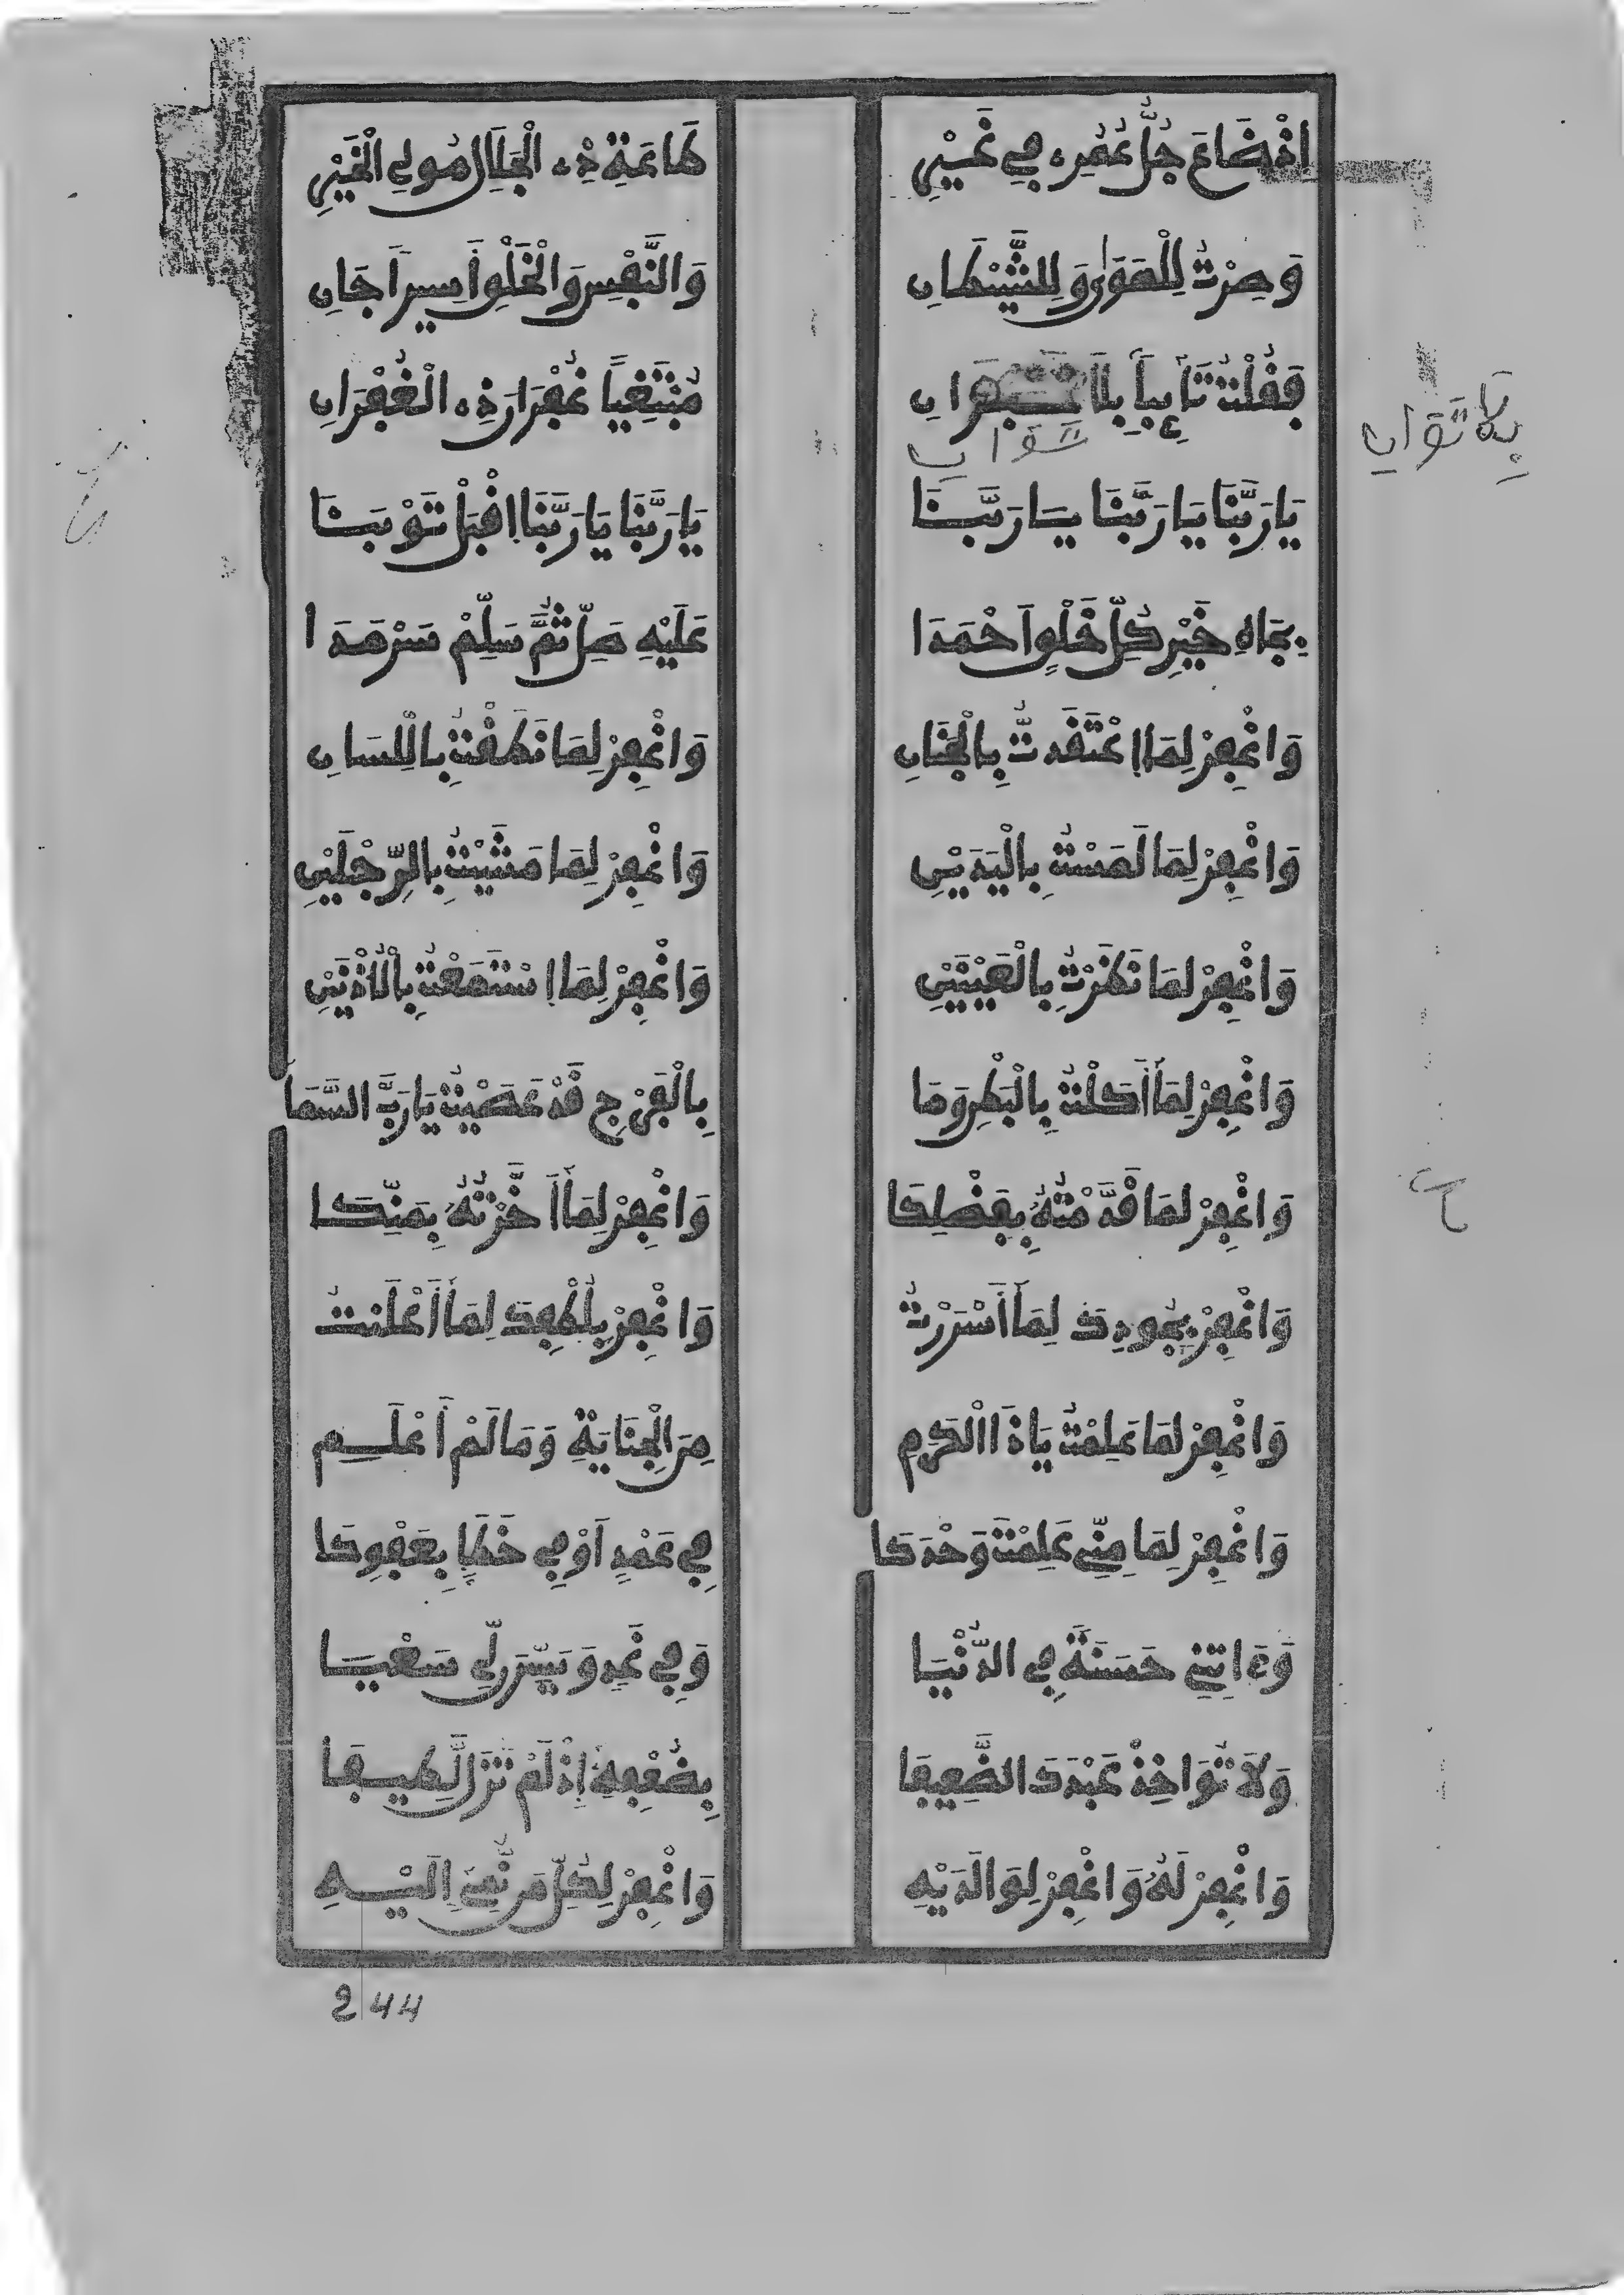 إِذْ ضَاعَ جُلُّ عُمُرِہ فِي غَيْرِ طَاعَةِ ذِہ الْجَلَالِ مُولِي الْخَيْرِ
وَصِرْتُ لِلْهَوَىٰ وَلِلشَّيْطَانِ وَالنَّفْسِ وَالْخَلْقِ أَسِيراً جَانِ
فَقُلْتُ تَائِباً بِلَا تَوَانِ مُبْتَغِياً غُفْرَانَ ذِہ الْغُفْرَانِ
بِلَا تَوَانِ
يَا رَبَّنَا يَا رَبَّنَا يَا رَبَّنَا يَا رَبَّنَا يَا رَبَّنَا اقْبَلْ تَوْبَنَا
بِجَاهِ خَيْرِ كُلِّ خَلْقٍ أَحْمَدَا عَلَيْهِ صَلِّ ثُمَّ سَلِّمْ سَرْمَدَا
وَاغْفِرْ لِمَا اعْتَقَدتُّ بِالْجَنَانِ وَاغْفِرْ لِمَا نَطَقْتُ بِاللِّسَانِ
وَاغْفِرْ لِمَا لَمَسْتُ بِالْيَدَيْنِ وَاغْفِرْ لِمَا مَشَيْتُ بِالرِّجْلَيْنِ
وَاغْفِرْ لِمَا نَظَرْتُ بِالْعَيْنَيْنِ وَاغْفِرْ لِمَا اسْتَمَعْتُ بِالْأُذْنَيْنِ
وَاغْفِرْ لِمَا أَكَلْتُ بِالْبَطْنِ وَمَا بِالْفَرْجِ قَدْ عَصَيْتُ يَا رَبَّ السَّمَا
وَاغْفِرْ لِمَا قَدَّمْتُهُ بِفَضْلِكَا وَاغْفِرْ لِمَا أَخَّرْتُهُ بِمَنِّكَا
وَاغْفِرْ بِجُودِكَ لِمَا أَسْرَرْتُ وَاغْفِرْ بِلُطْفِكَ لِمَا أَعْلَنتُ
وَاغْفِرْ لِمَا عَلِمْتُ يَا ذَا الْكَرَمِ مِنَ الْجِنَايَةِ وَمَا لَمْ أَعْلَمِ
وَاغْفِرْ لِمَا مِنِّي عَلِمْتَ وَحْدَكَا فِي عَمْدٍ أَوْ فِي خَطَإٍ بِعَفْوِكَا
وَءَاتِنِي حَسَنَةً فِي الدُّنْيَا وَفِي غَدٍ وَيَسِّرَن لِّي سَعْيَا
وَلَا تُوَاخِذْ عَبْدَكَ الضَّعِيفَا بِضُعْفِهِ إِذْ لَمْ تَزَل لَّطِيفَا
وَاغْفِرْ لَهُ وَاغْفِرْ لِوَالَدَيْهِ وَاغْفِرْ لِكُلِّ مَن نُّمِي إِلَيْهِ
244